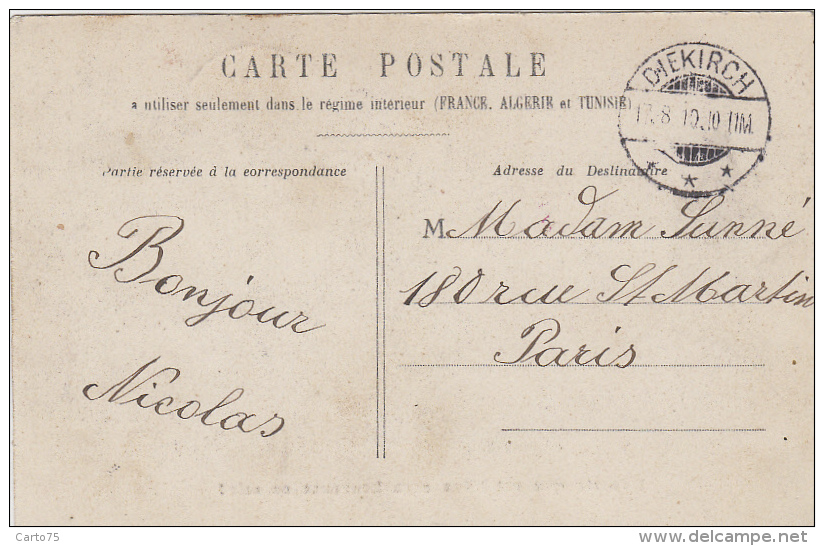 CARTE POSTALE
a utiliser seulement dans le régime intérieur (FRANCE, ALGERIE et TUNISIE)
Partie réservée à la correspondance
Adresse du Destinataire
DIEKIRCH
Bonjour
Nicolas
M Madam Sunné
180 rue St Martin
Paris
Carto75
delcampe.net